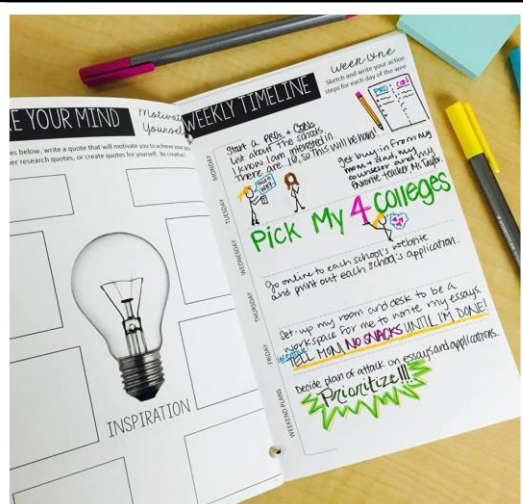 E YOUR MIND
Motivate
Yourself
es below, write a quote that will motivate you to achieve your
er research quotes, or create quotes for yourself. Be creative!
INSPIRATION
WEEKLY TIMELINE
Week One
Sketch and write your action
steps for each day of the week
MONDAY
Start a PROs + CONs
list about the schools
I know I am interested in.
There are 10, so this will be hard!
PRO CON
TUESDAY
get buy in from my
mom + dad, my
counselor and my
favorite teacher Ms. Taylor.
Pick My 4 Colleges
WEDNESDAY
Go online to each school's website
and print out each school's application.
THURSDAY
Set-up my room and desk to be a
workspace for me to write my essays.
FRIDAY
TELL MOM NO SNACKS UNTIL I'M DONE!
WEEKEND PLANS
Decide plan of attack on essays and applications.
Prioritize!!!